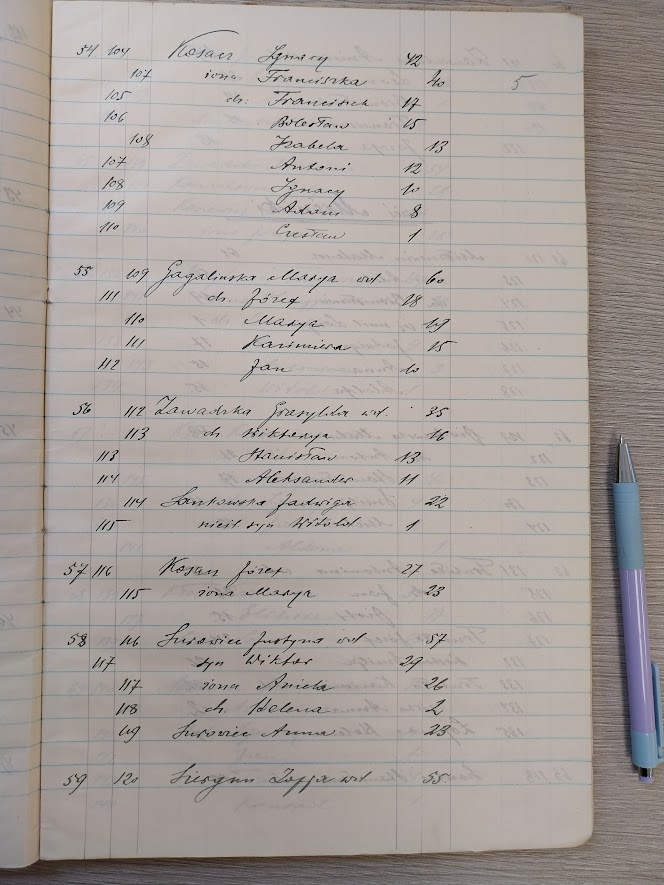 54 104 Kosacz Ignacy 42
107 żona Franciszka 40 5
105 dz. Franciszek 17
106 Bolesław 15
108 Izabela 13
107 Antoni 12
108 Ignacy 10
109 Adam 8
110 Czesław 1
55 109 Gagalinska Marya wd 60
111 dz. Józef 28
110 Marya 19
111 Kazimiera 15
112 Jan 10
56 112 Zawadzka Grasylda wd. 35
113 dz Wiktorya 16
113 Stanisław 13
114 Aleksander 11
114 Jankowska Jadwiga 22
115 nieśl. syn Witold 1
57 116 Kosacz Józef 27
115 żona Marya 23
58 116 Surowiec Justyna wd 57
117 syn Wiktor 29
117 żona Aniela 26
118 dz Helena 2
119 Surowiec Anna 23
59 120 Zofja wd 55